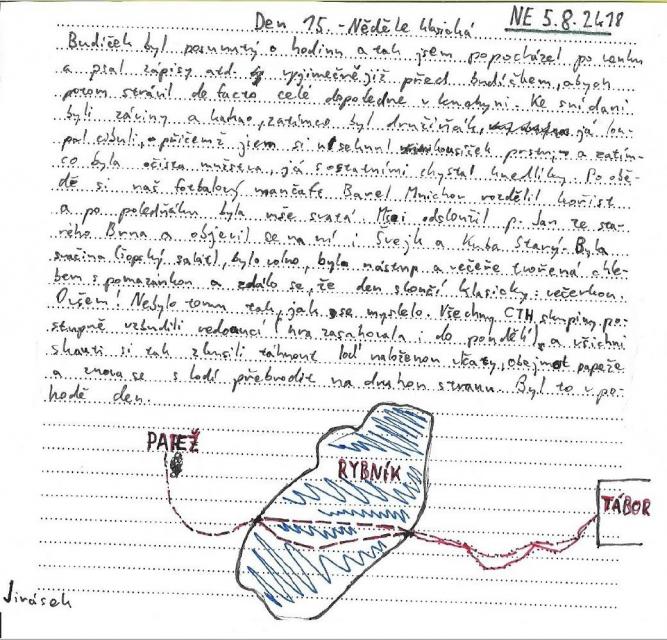 Den 15. - Neděle klasická
NE 5.8.2418
Budíček byl posunutý o hodinu a tak jsem popocházel po venku
a psal zápisy atd. výjimečně již před budíčkem, abych
potom strávil de facto celé dopoledne v kuchyni. Ke snídani
byli záviny a kakao, zatímco byl družiňák, já lou-
pal cibuli, přičemž jsem si useknul kousíček prstu, a zatím-
co byla očista mužstva, já s ostatními chystal knedlíky. Po obě-
dě si náš fotbalový mančaft Barel Mnichov rozdělil kořist
a po poledňáku byla mše svatá. Mši odsloužil p. Jan ze sta-
rého Brna a objevil se na ní i Švejk a Kuba Starý. Byla
svačina (šopský salát), bylo volno, byla nástup a večeře tvořená chle-
bem s pomazánkou a zdálo se, že den skončí klasicky: večerkou.
Ovšem! Nebylo tomu tak, jak se myslelo. Všechny CTH skupiny po-
stupně vzbudili vedoucí (hra zasahovala i do pondělí), a všichni
skauti si tak zkusili táhnout loď naloženou věcmi, obejmout papeže
a znova se s lodí přebrodit na druhou stranu. Byl to v po-
hodě den.
PAPEŽ
RYBNÍK
TÁBOR
Jirásek